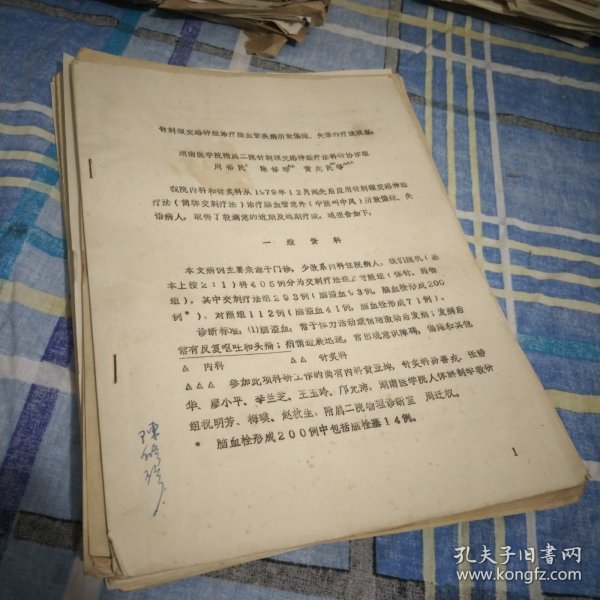 针刺颈交感神经治疗脑血管疾病所致偏瘫、失语的疗效观察
湖南医学院附属二院针刺颈交感神经疗法科研协作组
周裕民 陈修珍 黄兆民等
我院内科和针灸科从1979年12月起先后应用针刺颈交感神经
疗法(简称交刺疗法)治疗脑血管意外(中医叫中风)所致偏瘫、失
语病人,取得了较满意的近期及远期疗效,现报告如下:
一般资料
本文病例主要来源于门诊,少数系内科住院病人,我们随机(基
本上按2:1)将405例分为交刺疗法组及对照组(体针、药物
组),其中交刺疗法组293例(脑溢血93例,脑血栓形成200
例*)。对照组112例(脑溢血41例,脑血栓形成71例)。
诊断标准:(1)脑溢血:常于体力活动或情绪激动后发病;发病后
常有反复呕吐和头痛;病情进展迅速,常出现意识障碍,偏瘫和其他
△ 内科 △△ 针灸科
△△△ 参加此项科研工作的尚有内科黄亚坤,针灸科
华、廖小平、李兰芝、王玉玲、邝允涛,湖南医学院人体解剖学教研
组祝明芳、梅瑛、赵放生,附属二院物理诊断室 周迁权。
* 脑血栓形成200例中包括脑栓塞14例。
1
陈修珍
孔夫子旧书网
www.kongfz.com